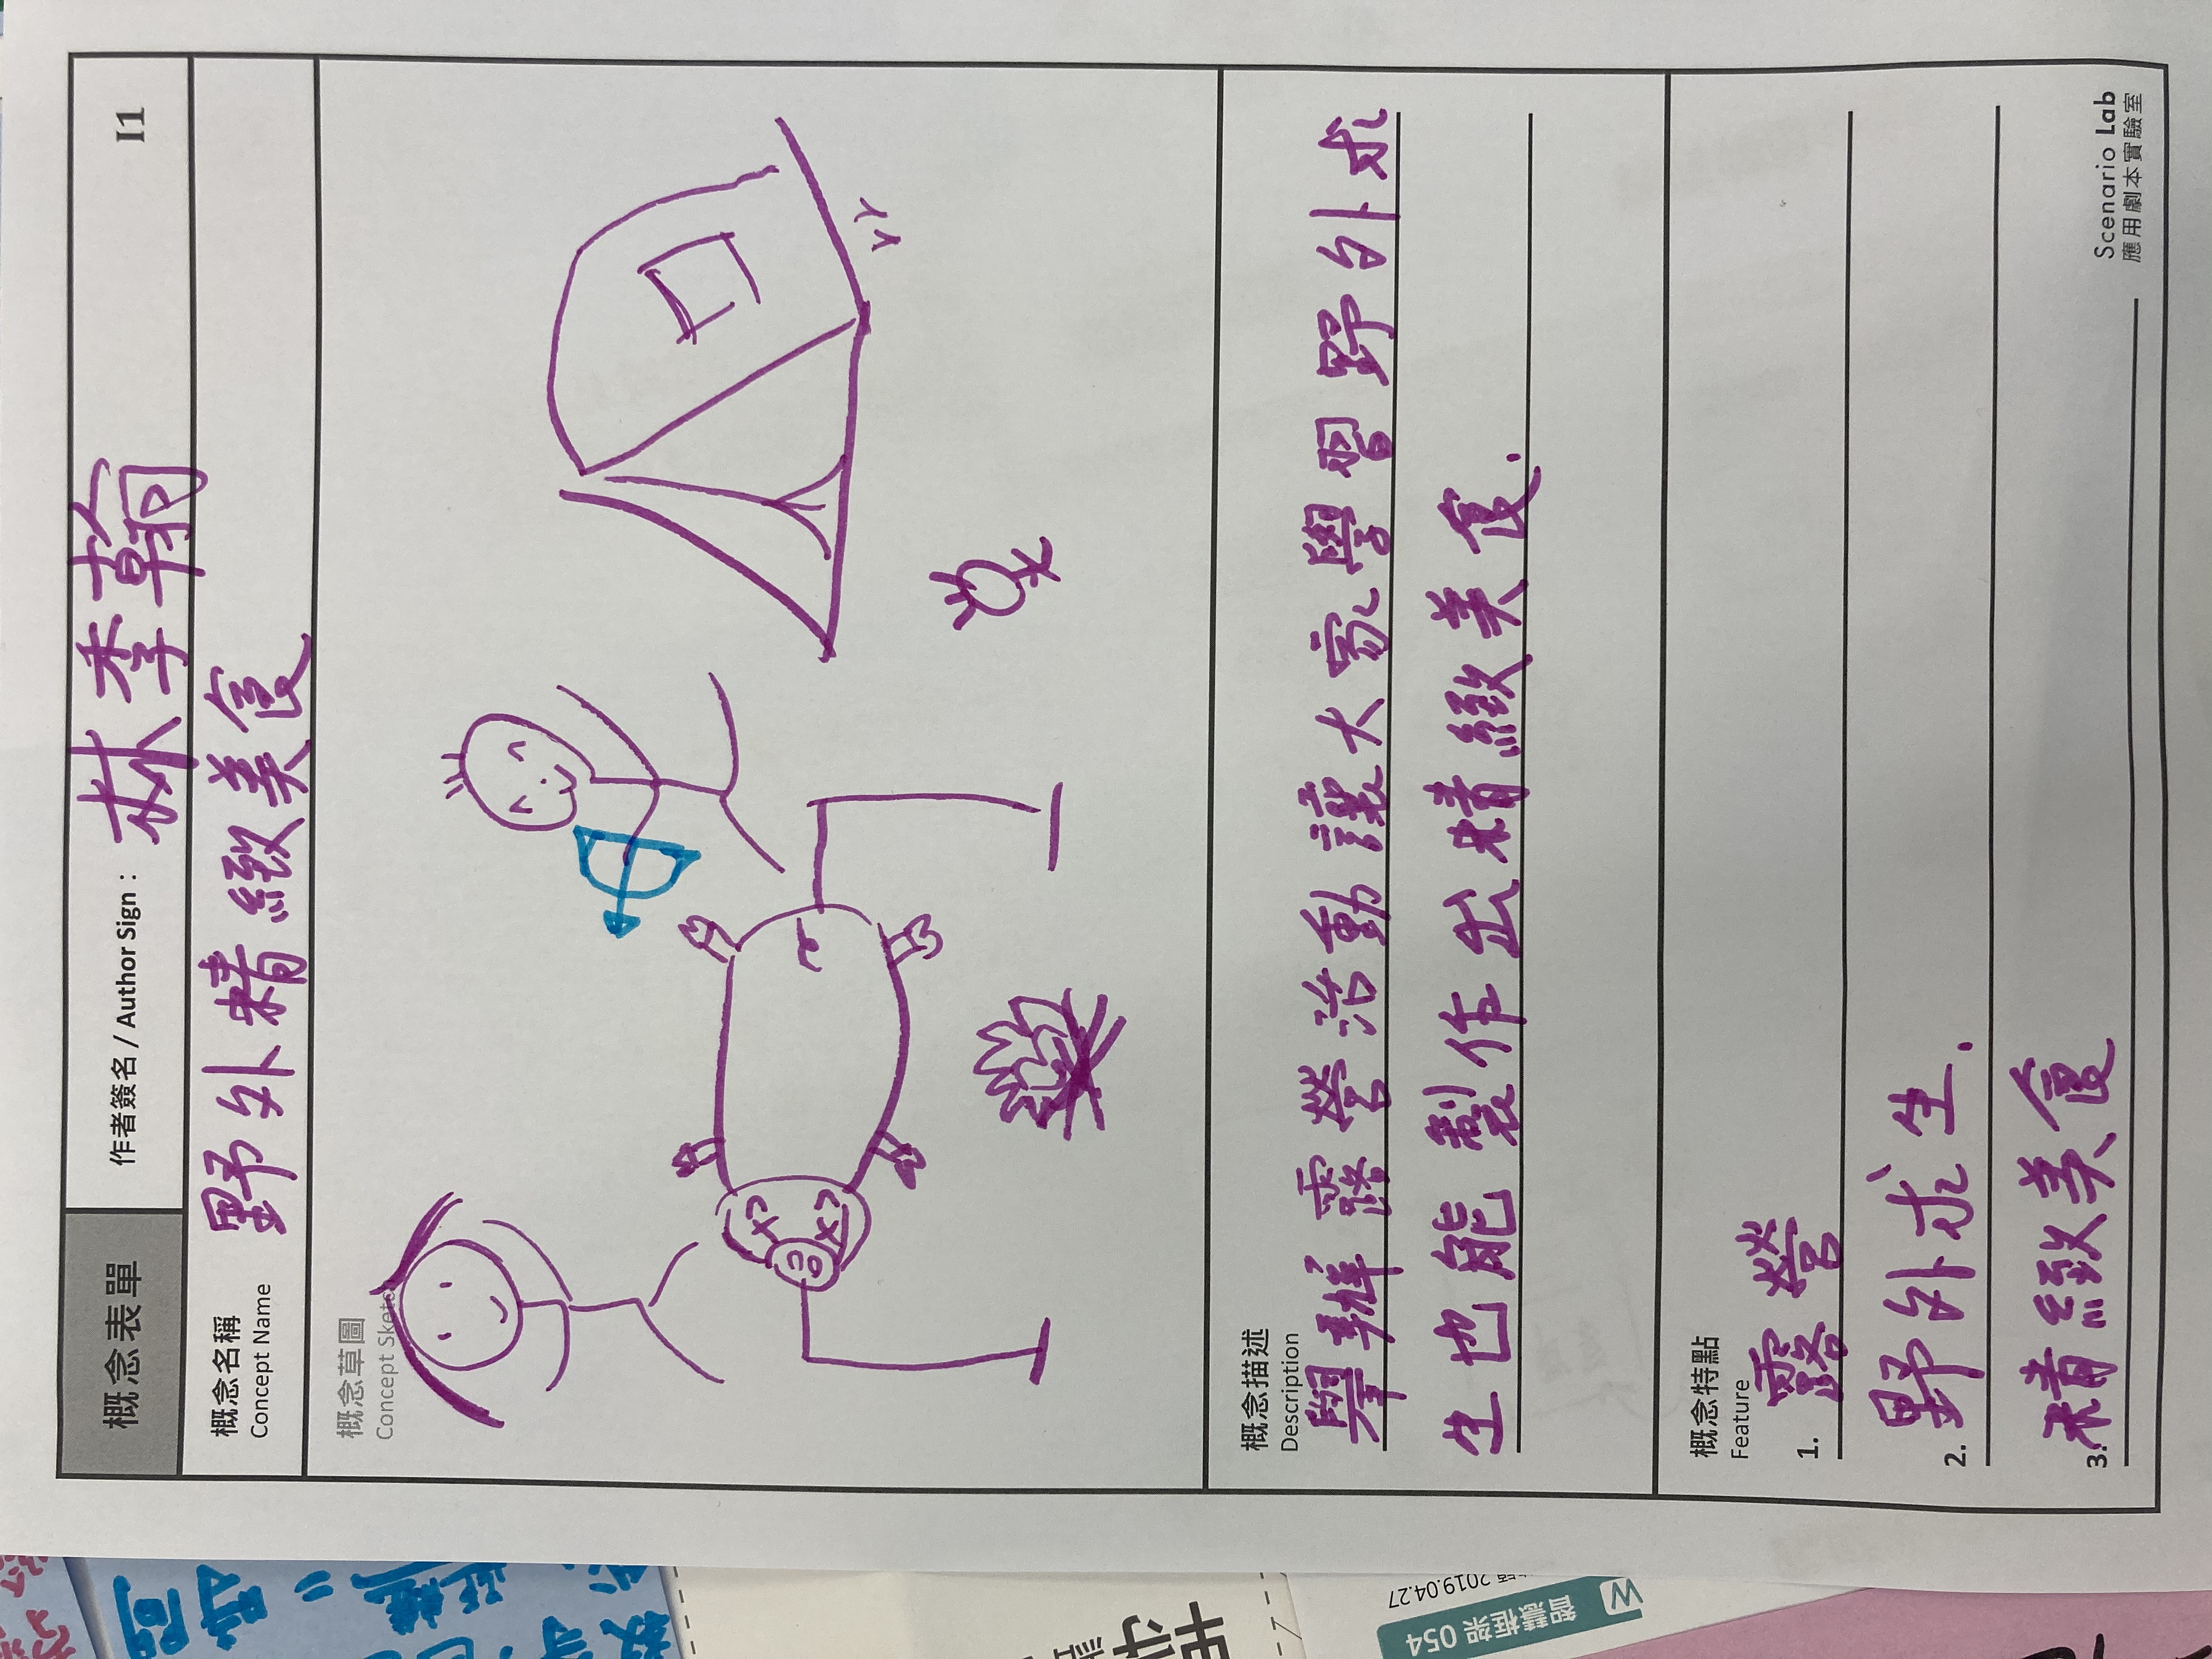 概念表單
作者簽名 / Author Sign：林季翰
I1
概念名稱
Concept Name
野外精緻美食
概念草圖
Concept Sketch
概念描述
Description
舉辦露營活動讓大家學習野外求
生也能製作出精緻美食.
概念特點
Feature
1. 露營
2. 野外求生.
3. 精緻美食
Scenario Lab
應用劇本實驗室
時間
W 智慧框架 054
2019.04.27